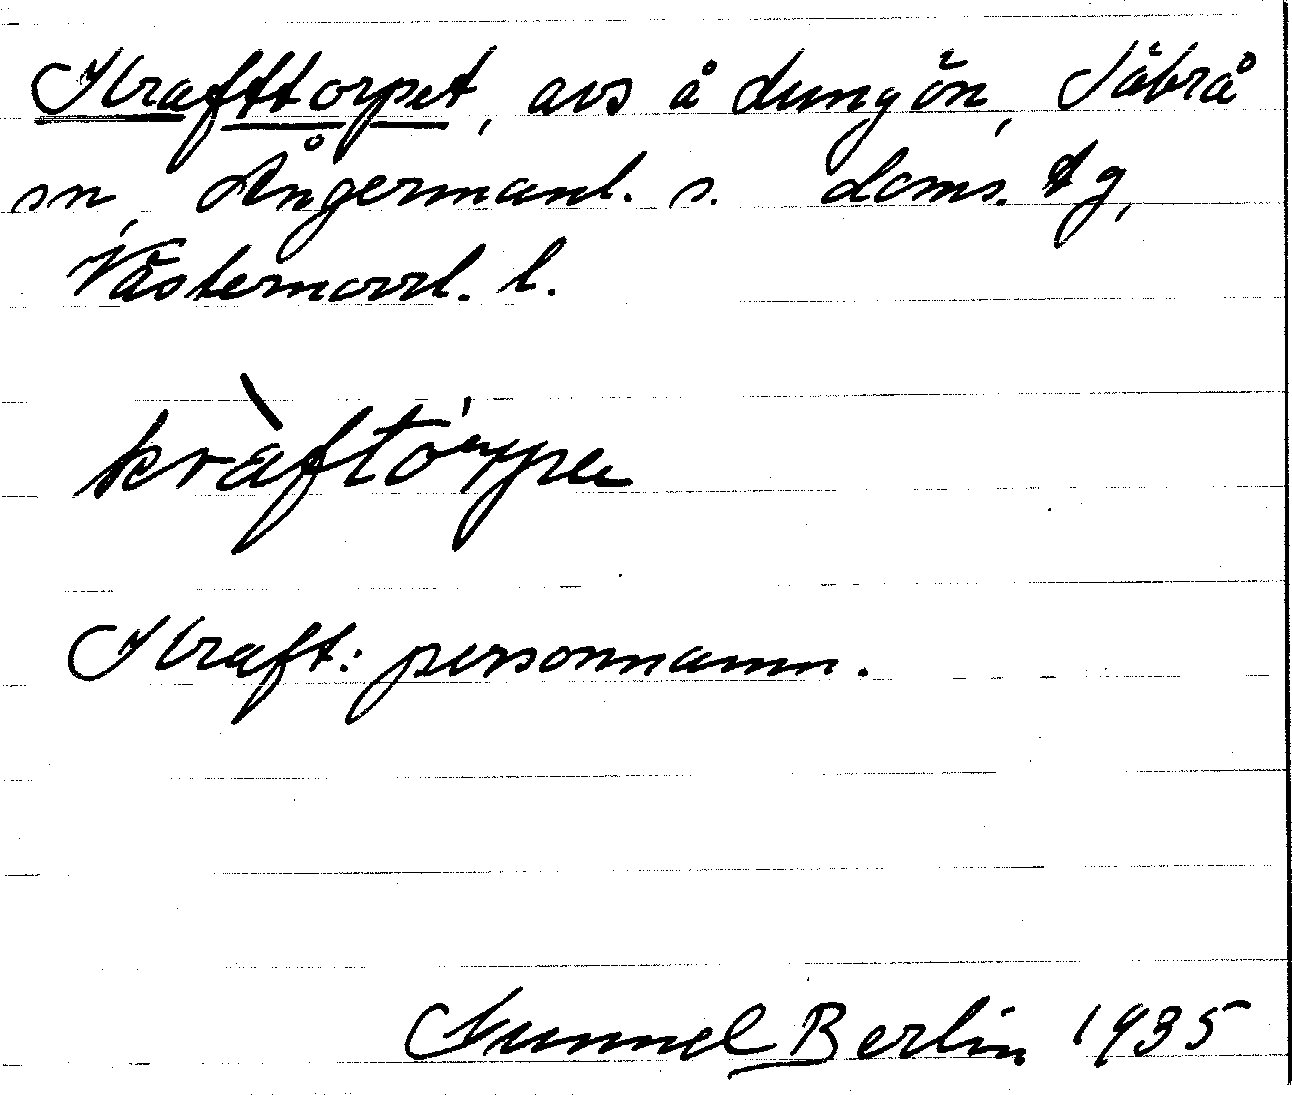 Krafttorpet, avs å Lungön, Säbrå
sn, Ångermanl. s. doms. tg,
Västernorrl. l.
kràftór̥pe
Kraft: personnamn.
Gunnel Berlin 1935